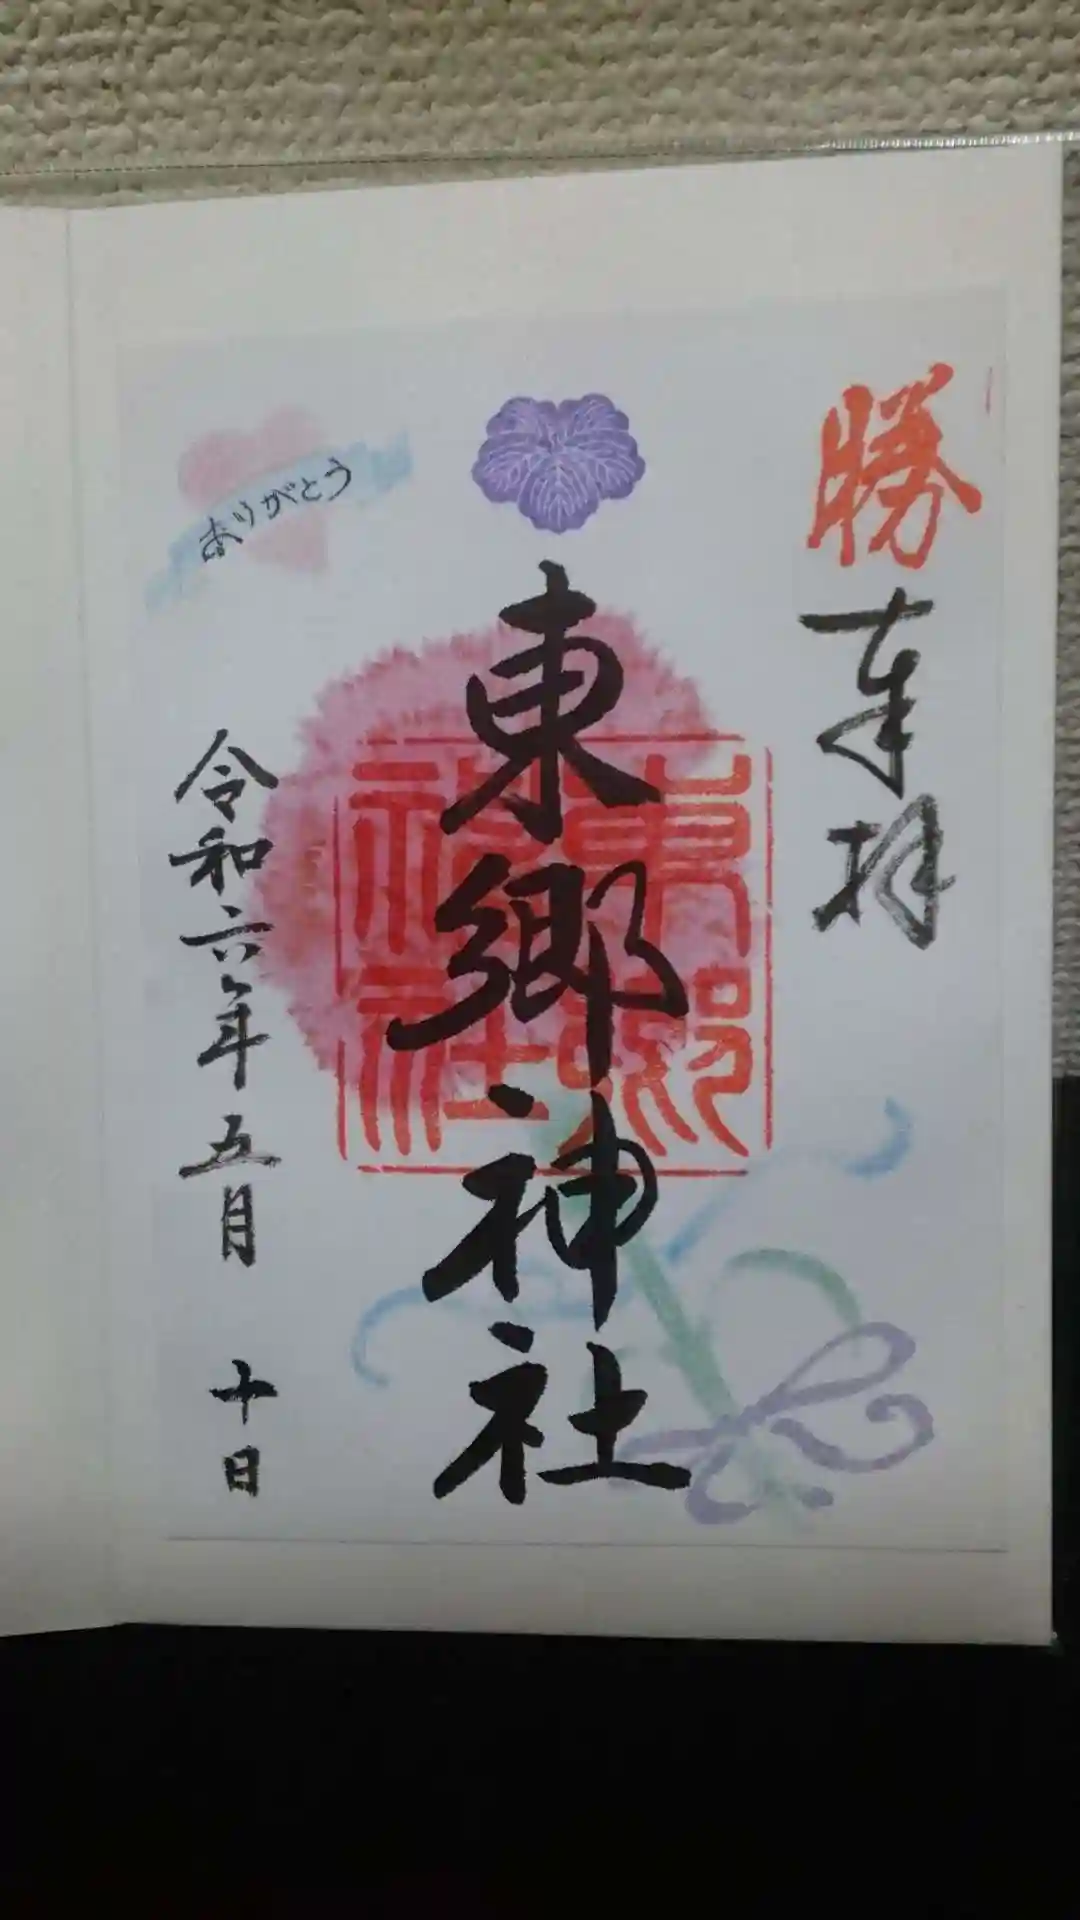 勝
奉拝
東郷神社
東郷神社
令和六年五月十日
ありがとう